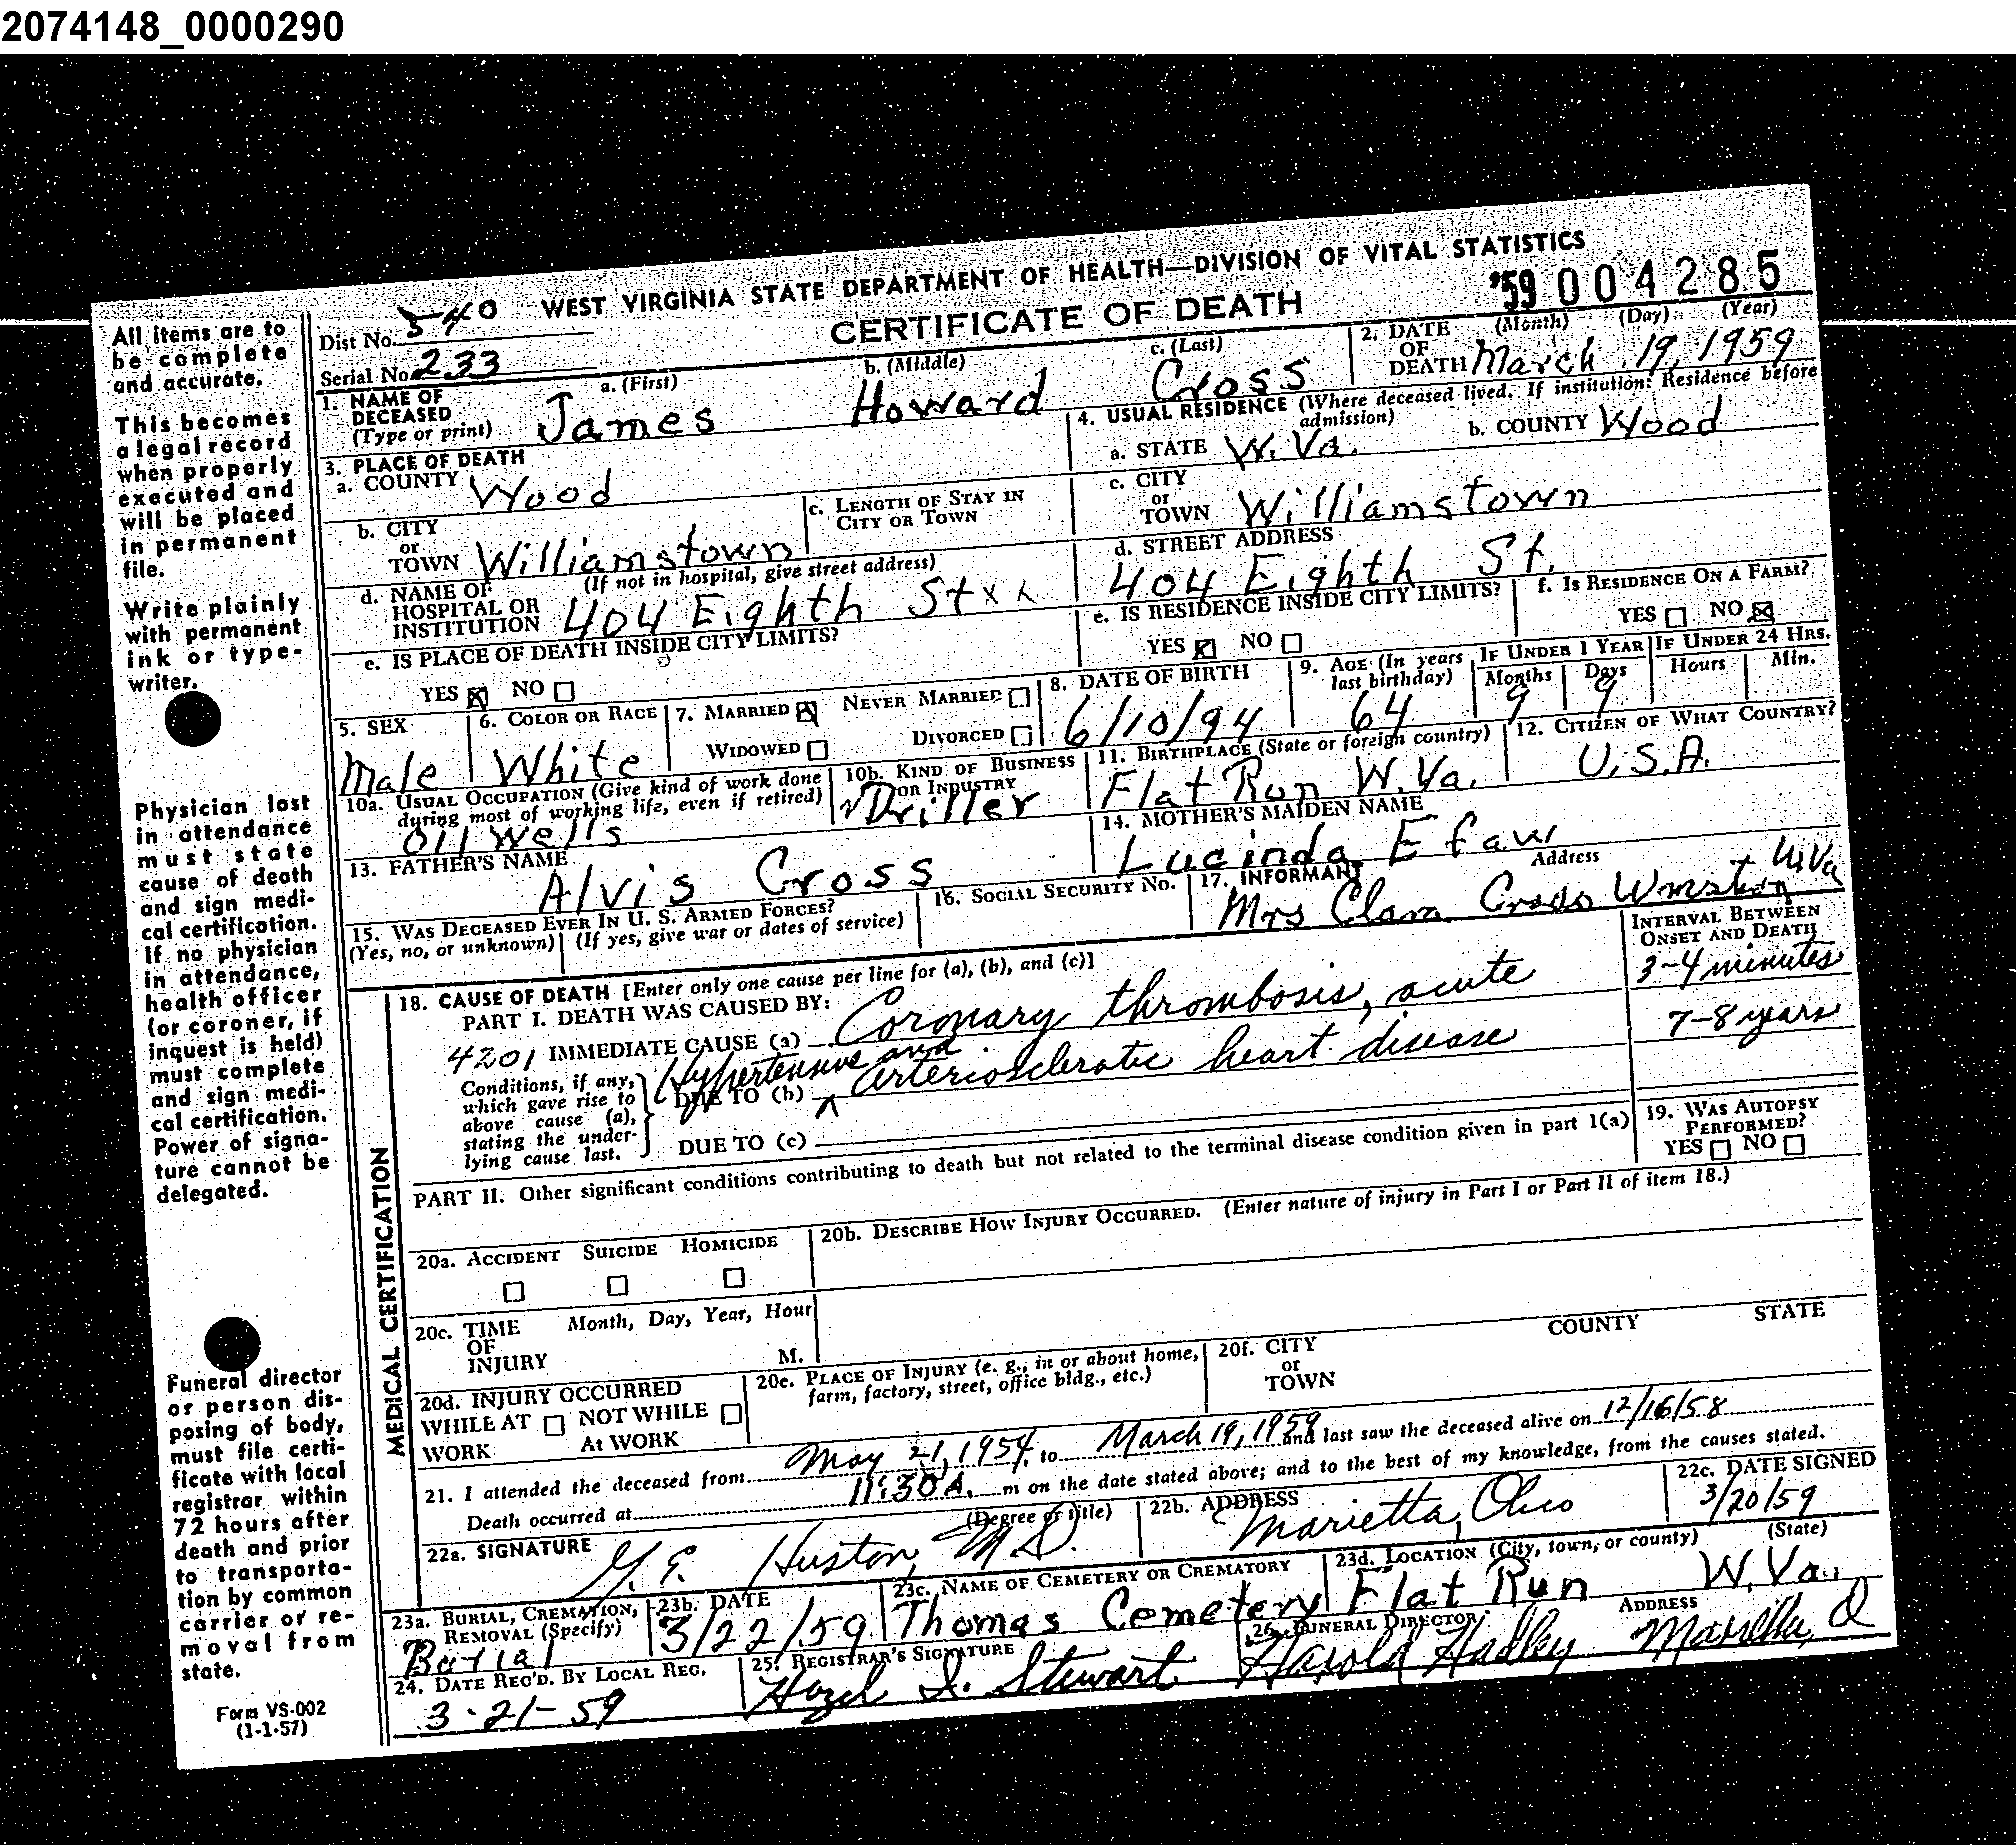 2074148_0000290
WEST VIRGINIA STATE DEPARTMENT OF HEALTH—DIVISION OF VITAL STATISTICS
CERTIFICATE OF DEATH
'59 004285
Dist No. 540
Serial No. 233
All items are to
be complete
and accurate.
This becomes
a legal record
when properly
executed and
will be placed
in permanent
file.
Write plainly
with permanent
ink or type-
writer.
Physician last
in attendance
must state
cause of death
and sign medi-
cal certification.
If no physician
in attendance,
health officer
(or coroner, if
inquest is held)
must complete
and sign medi-
cal certification.
Power of signa-
ture cannot be
delegated.
Funeral director
or person dis-
posing of body,
must file certi-
ficate with local
registrar within
72 hours after
death and prior
to transporta-
tion by common
carrier or re-
moval from
state.
Form VS-002
(1-1-57)
1. NAME OF DECEASED (Type or print) a. (First) James b. (Middle) Howard c. (Last) Cross
2. DATE OF DEATH (Month) (Day) (Year) March 19, 1959
3. PLACE OF DEATH
a. COUNTY Wood
b. CITY or TOWN Williamstown
c. LENGTH OF STAY IN CITY OR TOWN
d. NAME OF HOSPITAL OR INSTITUTION (If not in hospital, give street address) 404 Eighth St x x
e. IS PLACE OF DEATH INSIDE CITY LIMITS?
YES NO
4. USUAL RESIDENCE (Where deceased lived. If institution: Residence before admission)
a. STATE W. Va. b. COUNTY Wood
c. CITY or TOWN Williamstown
d. STREET ADDRESS 404 Eighth St.
e. IS RESIDENCE INSIDE CITY LIMITS?
YES NO
f. IS RESIDENCE ON A FARM?
YES NO
5. SEX Male
6. COLOR OR RACE White
7. MARRIED NEVER MARRIED
WIDOWED DIVORCED
8. DATE OF BIRTH 6/10/94
9. AGE (In years last birthday) 64
IF UNDER 1 YEAR Months 9 Days 9
IF UNDER 24 HRS. Hours Min.
10a. USUAL OCCUPATION (Give kind of work done during most of working life, even if retired) Oil Wells
10b. KIND OF BUSINESS OR INDUSTRY Driller
11. BIRTHPLACE (State or foreign country) Flat Run W. Va.
12. CITIZEN OF WHAT COUNTRY? U.S.A.
13. FATHER'S NAME Alvis Cross
14. MOTHER'S MAIDEN NAME Lucinda Efaw
15. WAS DECEASED EVER IN U. S. ARMED FORCES?
(Yes, no, or unknown) (If yes, give war or dates of service)
16. SOCIAL SECURITY NO.
17. INFORMANT Address
Mrs Clara Cross W. Va
18. CAUSE OF DEATH [Enter only one cause per line for (a), (b), and (c)]
INTERVAL BETWEEN ONSET AND DEATH
PART I. DEATH WAS CAUSED BY:
4201 IMMEDIATE CAUSE (a) Coronary thrombosis, acute 3-4 minutes
Conditions, if any, which gave rise to above cause (a), stating the underlying cause last.
DUE TO (b) Hypertensive and arteriosclerotic heart disease 7-8 years
DUE TO (c)
PART II. Other significant conditions contributing to death but not related to the terminal disease condition given in part I(a)
19. WAS AUTOPSY PERFORMED?
YES NO
MEDICAL CERTIFICATION
20a. ACCIDENT SUICIDE HOMICIDE
20b. DESCRIBE HOW INJURY OCCURRED. (Enter nature of injury in Part I or Part II of item 18.)
20c. TIME OF INJURY Month, Day, Year, Hour M.
20d. INJURY OCCURRED
WHILE AT WORK NOT WHILE At WORK
20e. PLACE OF INJURY (e. g., in or about home, farm, factory, street, office bldg., etc.)
20f. CITY or TOWN COUNTY STATE
21. I attended the deceased from May 21, 1954 to March 19, 1959 and last saw the deceased alive on 12/16/58
Death occurred at 11:30 A. m on the date stated above; and to the best of my knowledge, from the causes stated.
22a. SIGNATURE (Degree or title) Huston, M.D.
22b. ADDRESS Marietta, Ohio
22c. DATE SIGNED 3/20/59
23a. BURIAL, CREMATION, REMOVAL (Specify) Burial
23b. DATE 3/22/59
23c. NAME OF CEMETERY OR CREMATORY Thomas Cemetery
23d. LOCATION (City, town, or county) (State) Flat Run W. Va.
24. DATE REC'D. BY LOCAL REG. 3-21-59
25. REGISTRAR'S SIGNATURE Hazel I. Stewart
26. FUNERAL DIRECTOR ADDRESS
Harold Hadley Marietta, O